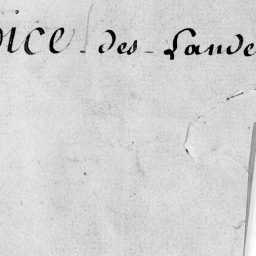 ice - des - Lande